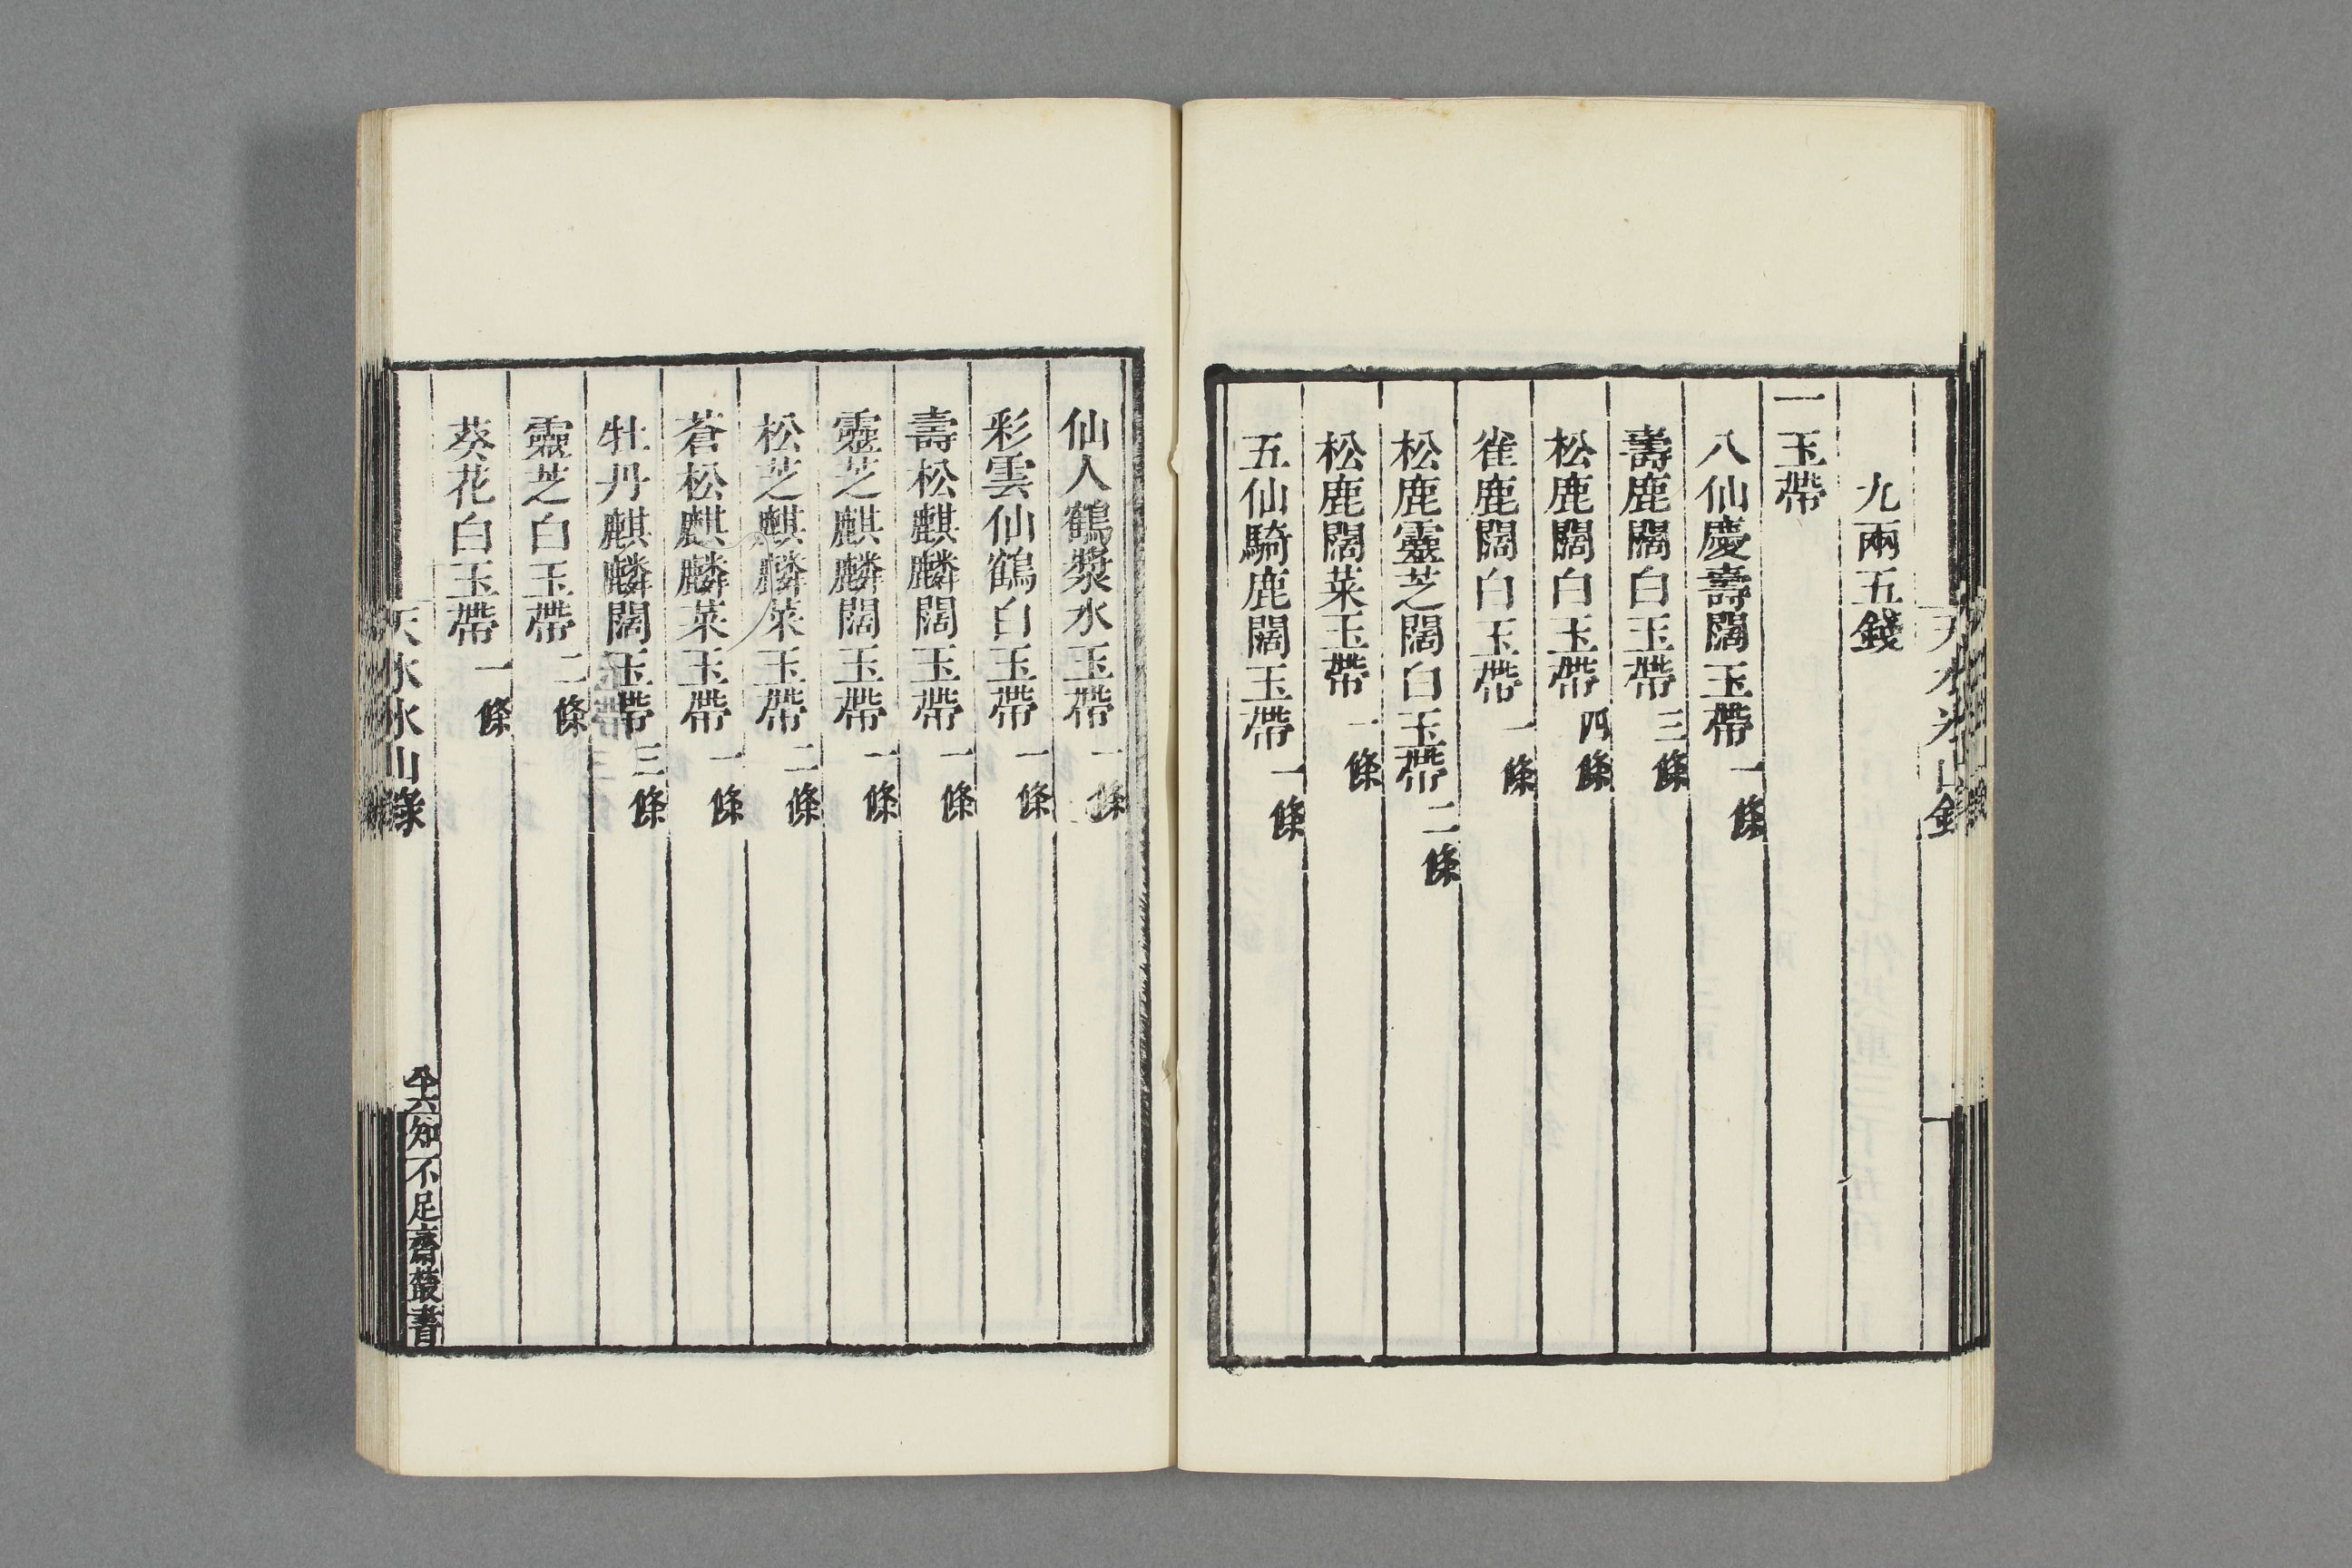 九兩五錢
一玉帶
八仙慶壽闊玉帶一條
壽鹿闊白玉帶三條
松鹿闊白玉帶四條
雀鹿闊白玉帶一條
松鹿靈芝闊白玉帶二條
松鹿闊菜玉帶一條
五仙騎鹿闊玉帶一條
仙人鶴漿水玉帶一條
彩雲仙鶴白玉帶一條
壽松麒麟闊玉帶一條
靈芝麒麟闊玉帶一條
松芝麒麟菜玉帶二條
蒼松麒麟菜玉帶一條
牡丹麒麟闊玉帶三條
靈芝白玉帶二條
葵花白玉帶一條
天水冰山錄
知不足齋叢書